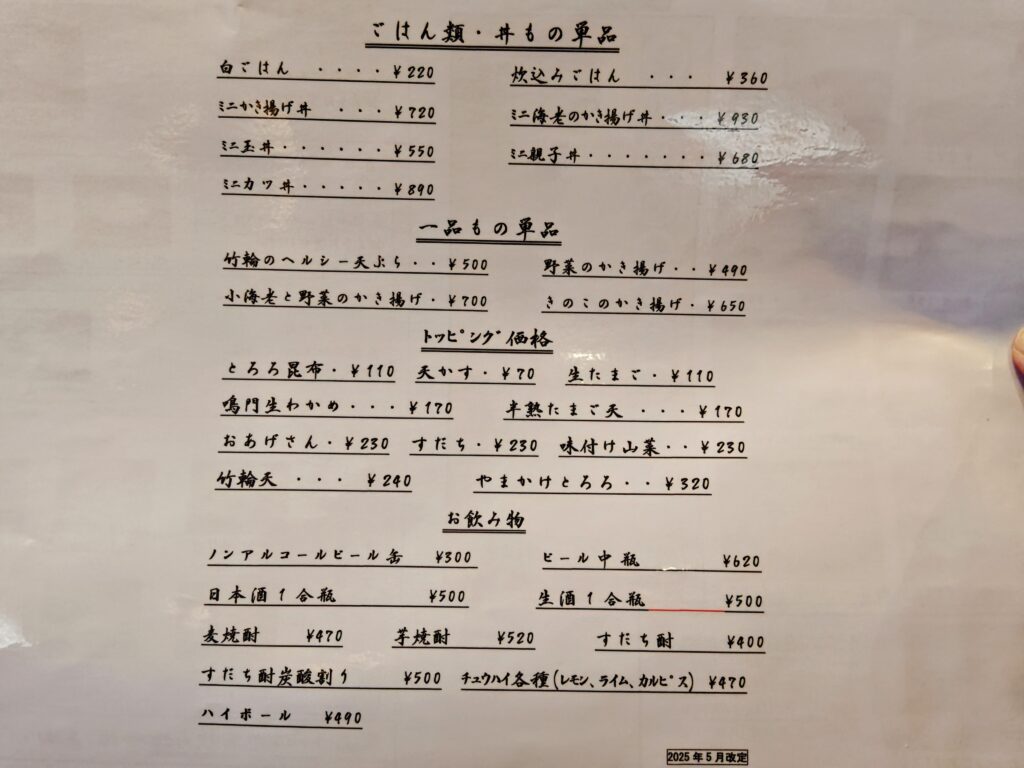 ごはん類・丼もの単品
白ごはん ・・・・¥220 炊込みごはん ・・・ ¥360
ミニかき揚げ丼 ・・・¥720 ミニ海老のかき揚げ丼・・・¥930
ミニ玉丼・・・・・¥550 ミニ親子丼・・・・・・・¥680
ミニカツ丼・・・・・¥890
一品もの単品
竹輪のヘルシー天ぷら・・¥500 野菜のかき揚げ・・¥490
小海老と野菜のかき揚げ・¥700 きのこのかき揚げ・¥650
トッピング価格
とろろ昆布・¥110 天かす・¥70 生たまご・¥110
鳴門生わかめ・・・¥170 半熟たまご天 ・・・¥170
おあげさん・¥230 すだち・¥230 味付け山菜・・¥230
竹輪天 ・・・ ¥240 やまかけとろろ・・¥320
お飲み物
ノンアルコールビール缶 ¥300 ビール中瓶 ¥620
日本酒1合瓶 ¥500 生酒1合瓶 ¥500
麦焼酎 ¥470 芋焼酎 ¥520 すだち酎 ¥400
すだち酎炭酸割り ¥500 チュウハイ各種(レモン、ライム、カルピス) ¥470
ハイボール ¥490
2025年5月改定